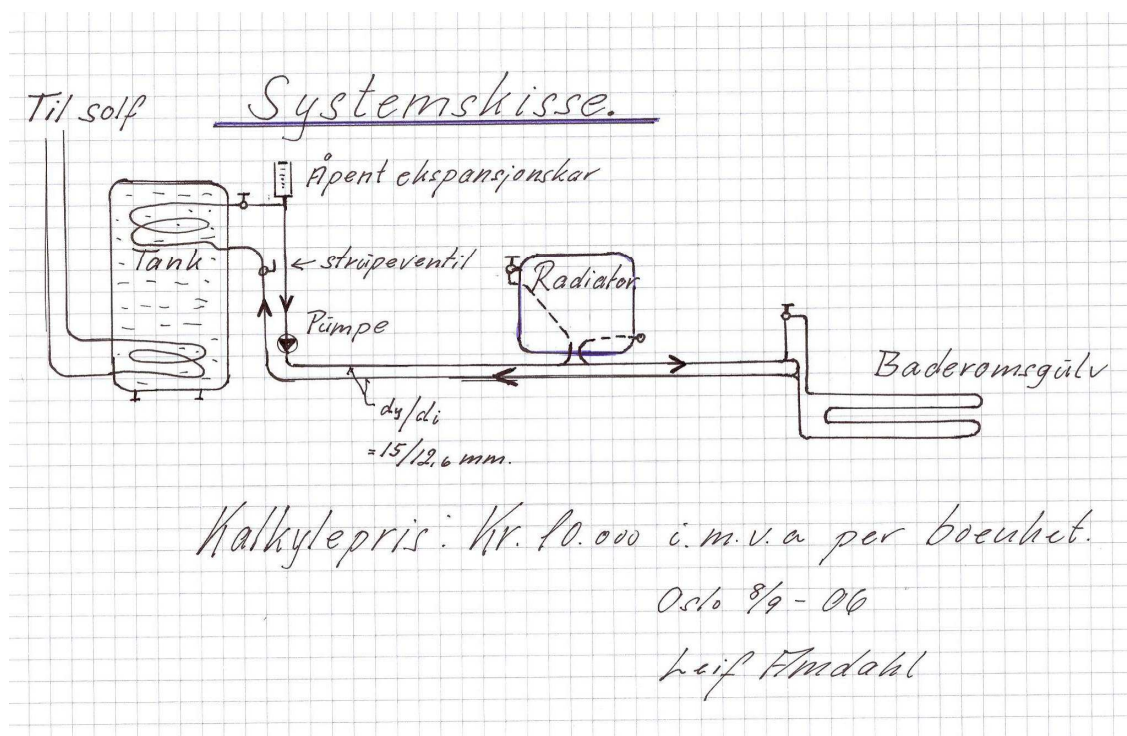 Systemskisse.
Til solf
Åpent ekspansjonskar
Tank
strupeventil
Radiator
Pumpe
Baderomsgulv
dy/di
=15/12,6 mm.
Kalkylepris: Kr. 10.000 i.m.v.a per boenhet.
Oslo 8/9-06
Leif Amdahl